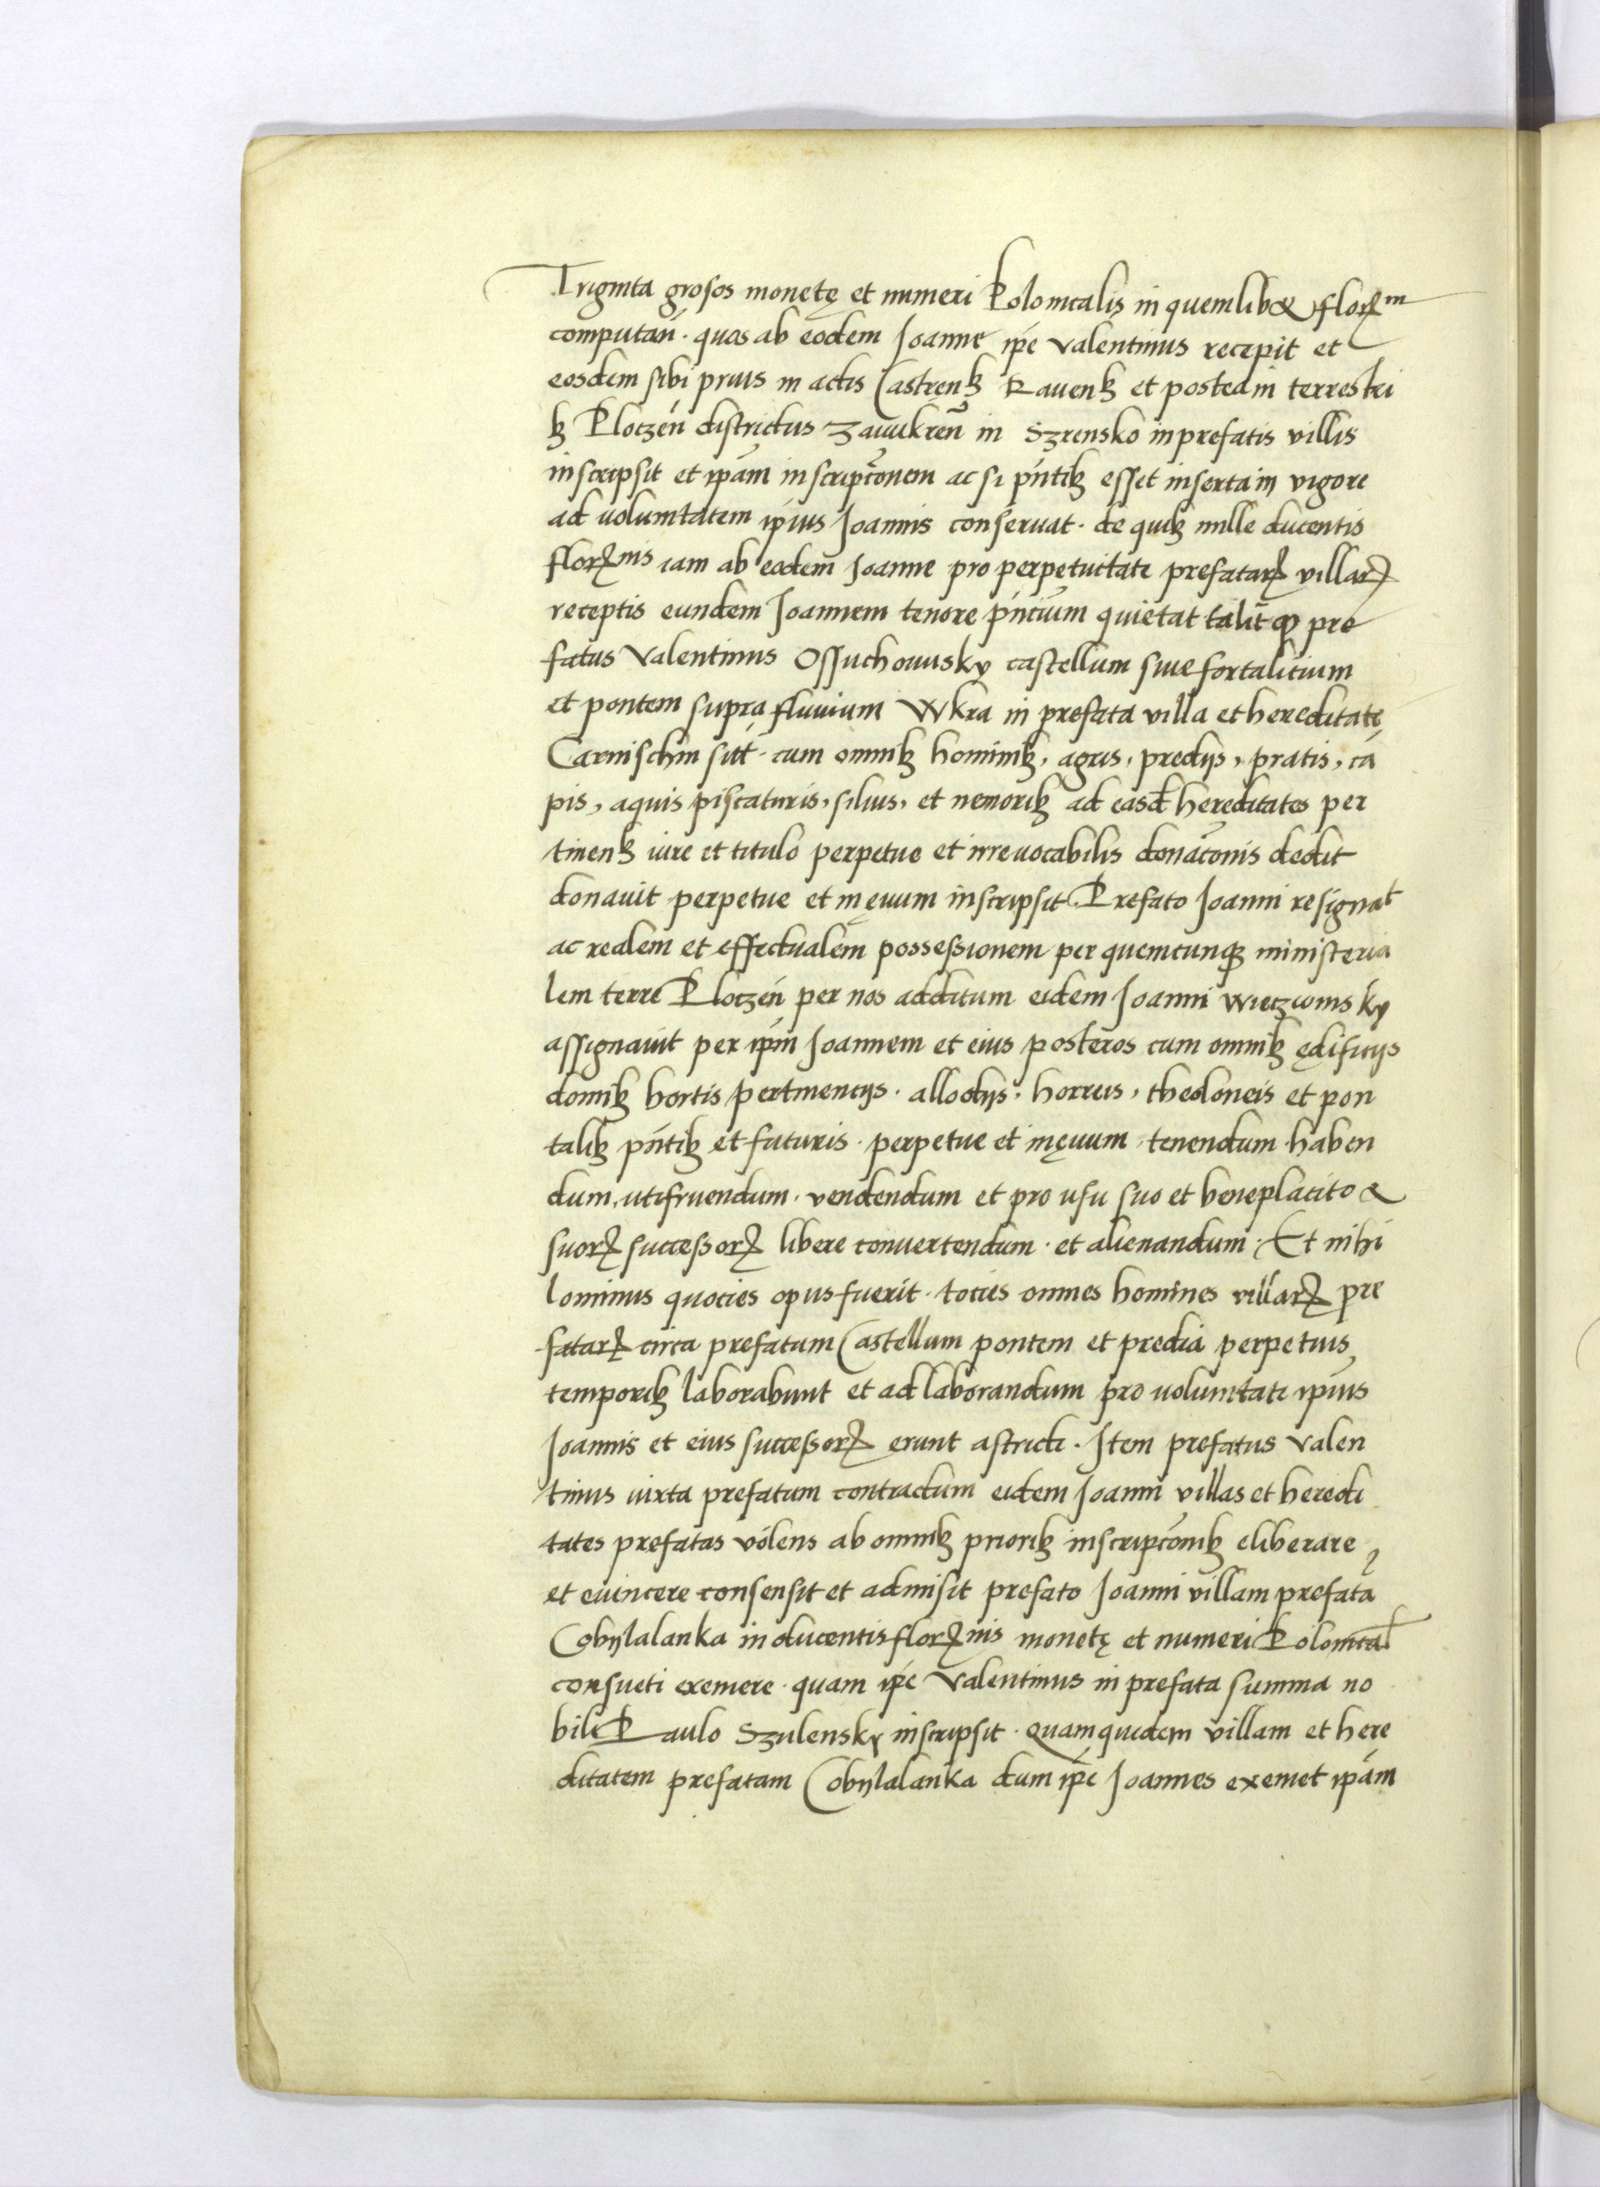 Triginta grosos monetę et numeri Polonicalis in quemlibꝫ florꝫm
computań · quos ab eodem Joanne ip̄e Valentinus recepit et
eosdem sibi prius in actis Castrenꝫ Ravenꝫ et postea in terrestri
bꝫ Ploczeń districtus Zawukreń in Szrensko in prefatis villis
inscripsit et ip̄am inscripc̄onem ac si pn̄tibꝫ esset inserta in vigore
ad voluntatem ip̄ius Joannis conservat · de quibꝫ mille ducentis
florꝫnis iam ab eodem Joanne pro perpetuitate prefatarꝫ villarꝫ
receptis eundem Joannem tenore pn̄cium quietat talit̄ qꝫ pre
fatus Valentinus Ossuchowsky castellum sive fortalitium
et pontem supra fluvium Wkra in prefata villa et hereditate
Carnischin sitt̄ · cum omnibꝫ hominibꝫ, agris, predijs, pratis, cā
pis, aquis piscaturis, silvis, et nemoribꝫ ad easd̄ hereditates per
tinenꝫ iure et titulo perpetue et irrevocabilis donac̄onis dedit
donavit perpetue et in ęvum inscripsit Prefato Joanni resignat
ac realem et effectualem possessionem per quemcunqꝫ ministeria
lem terre Ploczeń per nos additum eidem Joanni Wieczwinsky
assignavit per ip̄m Joannem et eius posteros cum omnibꝫ ędificijs
domibꝫ hortis pertinencijs · allodijs, horreis, theoloneis et pon
talibꝫ pn̄tibꝫ et futuris · perpetue et in ęvum · tenendum haben
dum, utifruendum · vendendum et pro usu suo et beneplacito &
suorꝫ successorꝫ libere convertendum · et alienandum · Et nihi
lominus quocies opus fuerit · tocies omnes homines villarꝫ pre
fatarꝫ circa prefatum Castellum pontem et predia perpetuis
temporibꝫ laborabunt et ad laborandum pro voluntate ip̄ius
Joannis et eius successorꝫ erunt astricti · Item prefatus Valen
tinus iuxta prefatum contractum eidem Joanni villas et heredi
tates prefatas volens ab omnibꝫ prioribꝫ inscripc̄onibꝫ eliberare
et evincere consensit et admisit prefato Joanni villam prefatā
Cobylalanka in ducentis florꝫnis monetę et numeri Polonical̄
consueti exemere · quam ip̄e Valentinus in prefata summa no
bili Paulo Szulensky inscripsit · quam quidem villam et here
ditatem prefatam Cobylalanka dum ip̄e Joannes exemet ip̄am